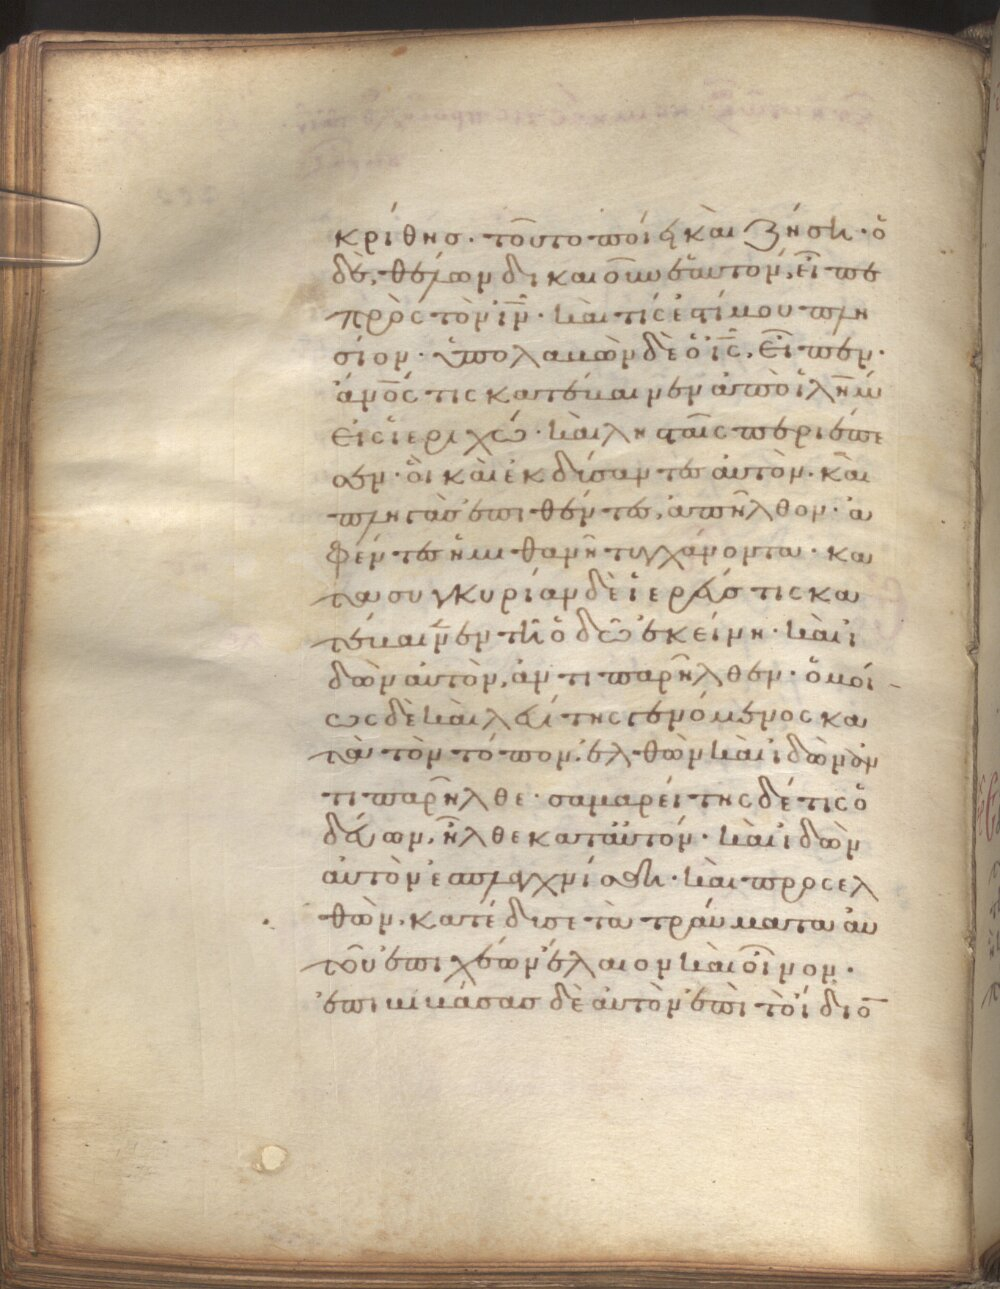 κρίθης· τοῦτο ποίει καὶ ζήση· ὁ
δὲ, θέλων δικαιοῦν ἑαυτόν, εἶπε
πρὸς τὸν ἰν̅· καὶ τίς ἐστί μου πλη
σίον· ὑπολαβὼν δὲ ὁ ἰς̅, εἶπεν·
ἄνο̅ς τις κατέβαινεν ἀπὸ ἰλη̅μ
εἰς ἱεριχώ· καὶ λησταῖς περιέπε
σεν· οἳ καὶ ἐκδύσαντες αὐτὸν· καὶ
πληγὰς ἐπιθέντες, ἀπῆλθον· ἀ
φέντες ἡμιθανῆ τυγχάνοντα· κα
τὰ συγκυρίαν δὲ ἱερεύς τις κα
τέβαινεν τῆ ὁδῶ ἐκείνη· καὶ ἰ
δὼν αὐτὸν, ἀντιπαρῆλθεν· ὁμοί
ως δὲ καὶ λευίτης γενόμενος κα
τὰ τὸν τόπον, ἐλθὼν καὶ ἰδὼν ἀν
τιπαρῆλθε· σαμαρείτης δέ τις ὁ
δεύων, ἦλθε κατ αὐτόν· καὶ ἰδὼν
αὐτὸν ἐσπλαγχνίσθη· καὶ προσελ
θὼν, κατέδησε τὰ τραύματα αὐ
τοῦ ἐπιχέων ἔλαιον καὶ οἶνον·
ἐπιβιβάσας δὲ αὐτὸν ἐπὶ τὸ ἴδιο̅